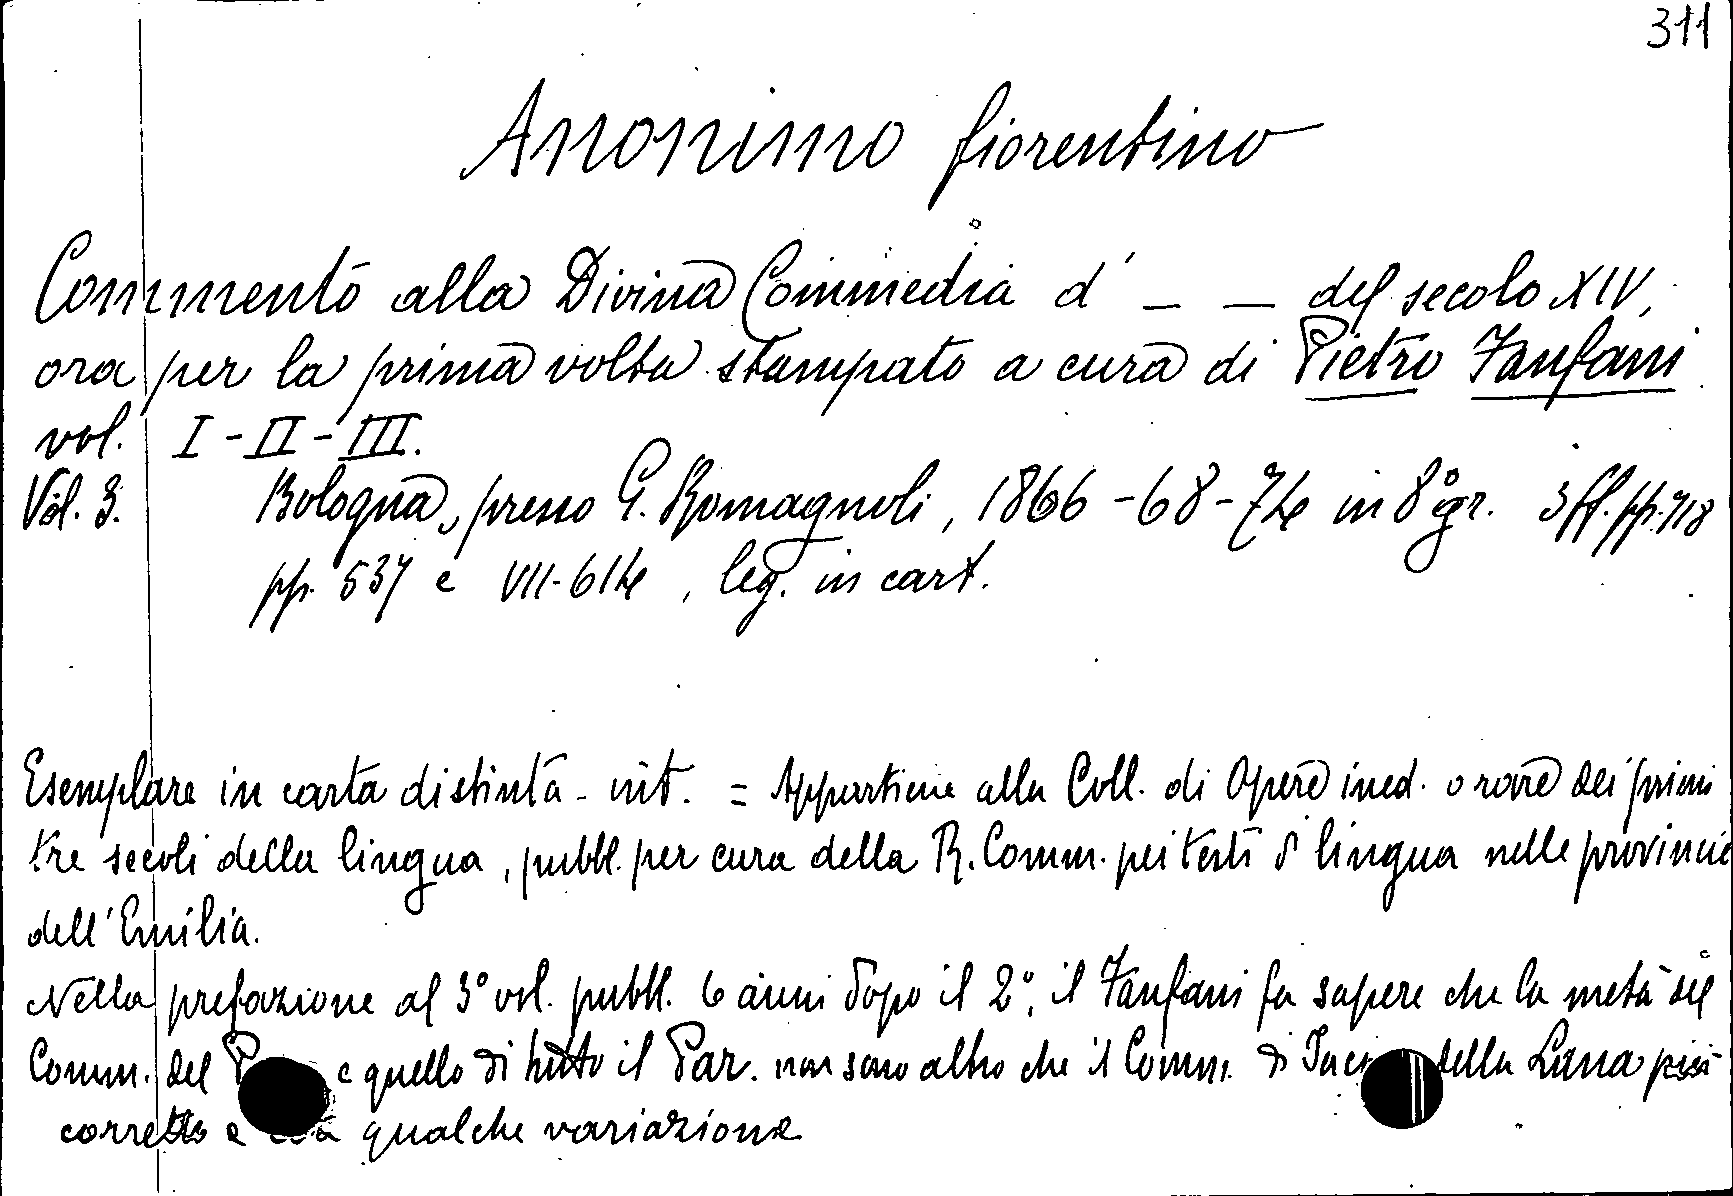 311
Anonimo fiorentino
Commento alla Divina Commedia d' _ _ del secolo XIV,
ora per la prima volta stampato a cura di Pietro Fanfani
vol. I - II - III.
Vol. 3. Bologna, presso G. Romagnoli, 1866 - 68 - 74 in 8° gr. 3 ff. pp. 718
pp. 537 e VII-614, leg. in cart.
Esemplare in carta distinta - int. = Appartiene alla Coll. di Opere ined. o rare dei primi
tre secoli della lingua, pubbl. per cura della R. Comm. pei testi di lingua nelle provincie
dell'Emilia.
Nella prefazione al 3° vol. pubbl. 6 anni dopo il 2°, il Fanfani fa sapere che la metà del
Comm. del e quello di tutto il Par. non sono altro che il Comm. di della Lana più
corretto e qualche variazione